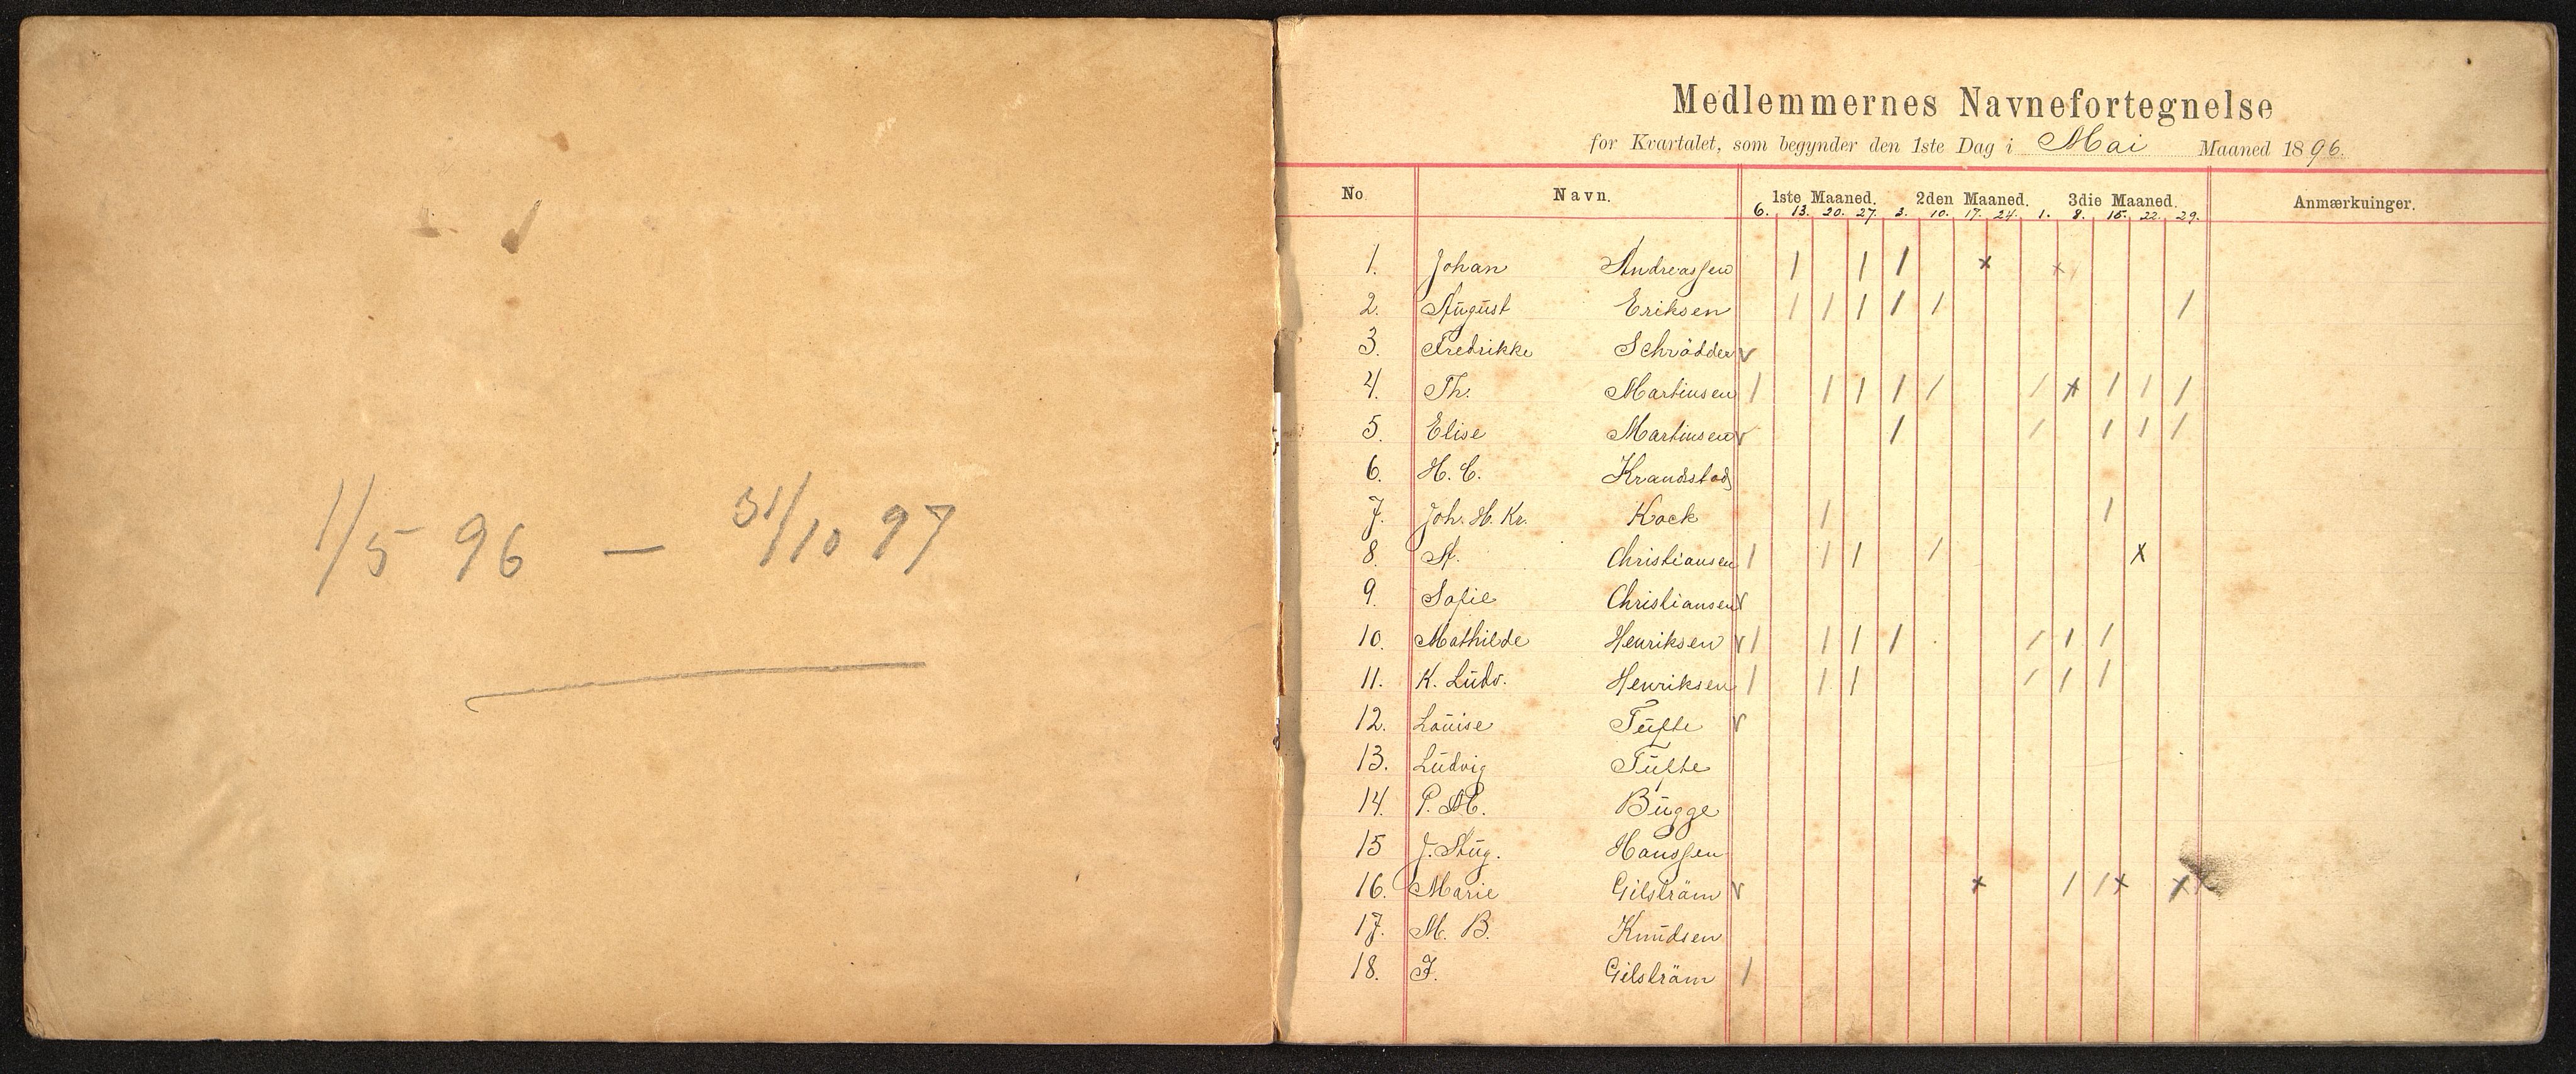 1/5 96 — 31/10 97
Medlemmernes Navnefortegnelse
for Kvartalet, som begynder den 1ste Dag i Mai Maaned 1896.
No. Navn. 1ste Maaned. 2den Maaned. 3die Maaned. Anmærkninger.
6. 13. 20. 27. 3. 10. 17. 24. 1. 8. 15. 22. 29.
1. Johan Andreassen / / / x x
2. August Eriksen / / / / / /
3. Fredrikke Schrödder v
4. Th. Martinsen / / / / / / x / / /
5. Elise Martinsen v / / / / /
6. H. C. Krandstad
7. Joh. H. Kr. Kock / /
8. A. Christiansen / / / / x
9. Sofie Christiansen v
10. Mathilde Henriksen v / / / / / / /
11. K. Ludv. Henriksen / / / / / /
12. Louise Tufte v
13. Ludvig Tufte
14. P. M. Bugge
15 J. Aug. Hanssen
16. Marie Gilsträm v x / / x x
17. M. B. Knudsen
18. F. Gilsträm /